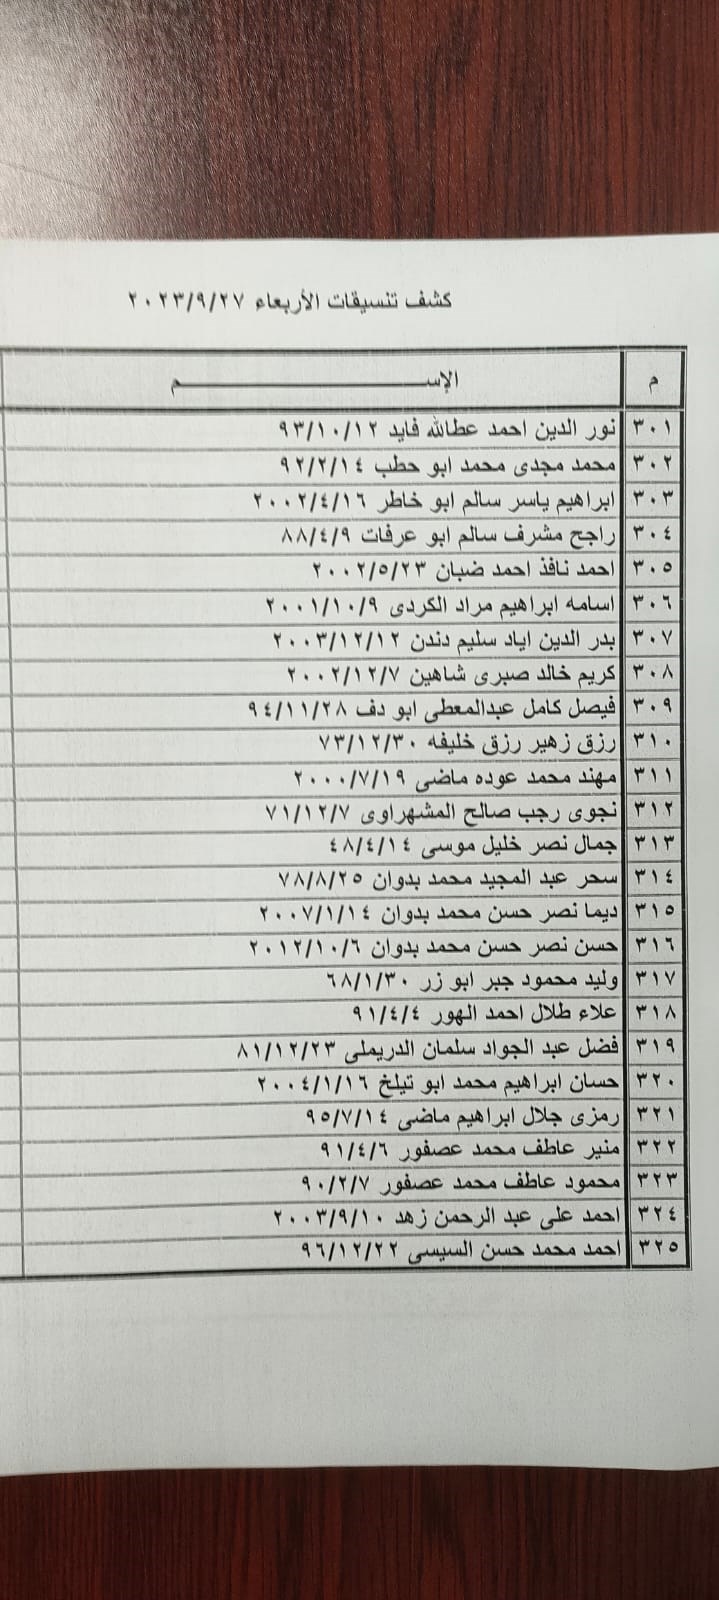 كشف تنسيقات الأربعاء ٢٠٢٣/٩/٢٧
م الإســـــــــم
٣٠١ نور الدين احمد عطالله فايد ٩٣/١٠/١٢
٣٠٢ محمد مجدى محمد ابو حطب ٩٢/٢/١٤
٣٠٣ ابراهيم ياسر سالم ابو خاطر ٢٠٠٢/٤/١٦
٣٠٤ راجح مشرف سالم ابو عرفات ٨٨/٤/٩
٣٠٥ احمد نافذ احمد ضبان ٢٠٠٢/٥/٢٣
٣٠٦ اسامه ابراهيم مراد الكردى ٢٠٠١/١٠/٩
٣٠٧ بدر الدين اياد سليم دندن ٢٠٠٣/١٢/١٢
٣٠٨ كريم خالد صبرى شاهين ٢٠٠٢/١٢/٧
٣٠٩ فيصل كامل عبدالمعطى ابو دف ٩٤/١١/٢٨
٣١٠ رزق زهير رزق خليفه ٧٣/١٢/٣٠
٣١١ مهند محمد عوده ماضى ٢٠٠٠/٧/١٩
٣١٢ نجوى رجب صالح المشهراوى ٧١/١٢/٧
٣١٣ جمال نصر خليل موسى ٤٨/٤/١٤
٣١٤ سحر عبد المجيد محمد بدوان ٧٨/٨/٢٥
٣١٥ ديما نصر حسن محمد بدوان ٢٠٠٧/١/١٤
٣١٦ حسن نصر حسن محمد بدوان ٢٠١٢/١٠/٦
٣١٧ وليد محمود جبر ابو زر ٦٨/١/٣٠
٣١٨ علاء طلال احمد الهور ٩١/٤/٤
٣١٩ فضل عبد الجواد سلمان الدريملى ٨١/١٢/٢٣
٣٢٠ حسان ابراهيم محمد ابو تيلخ ٢٠٠٤/١/١٦
٣٢١ رمزى جلال ابراهيم ماضى ٩٥/٧/١٤
٣٢٢ منير عاطف محمد عصفور ٩١/٤/٦
٣٢٣ محمود عاطف محمد عصفور ٩٠/٢/٧
٣٢٤ احمد على عبد الرحمن زهد ٢٠٠٣/٩/١٠
٣٢٥ احمد محمد حسن السيسى ٩٦/١٢/٢٢